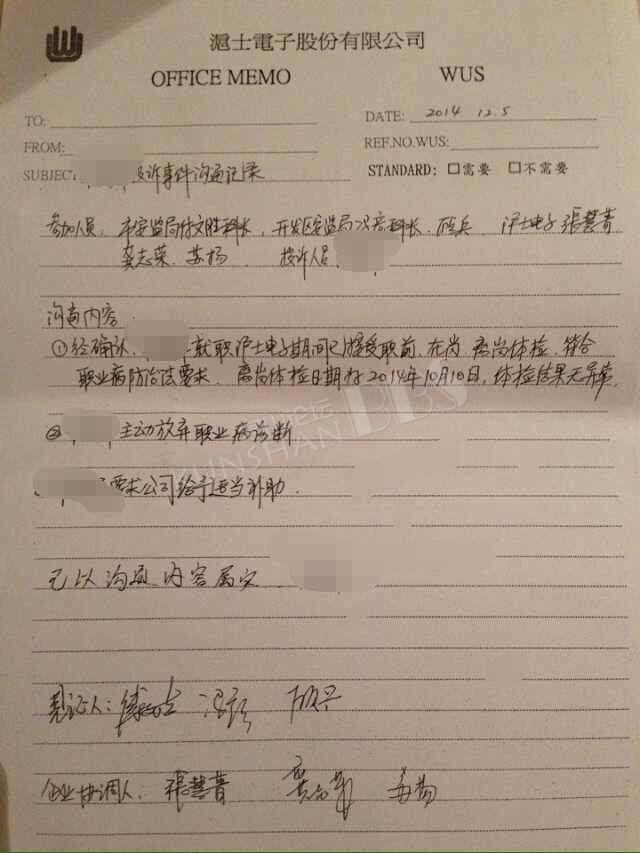 滬士電子股份有限公司
OFFICE MEMO WUS
TO: DATE: 2014 12.5
FROM: REF.NO.WUS:
SUBJECT: 投诉事件沟通记录 STANDARD: □需要 □不需要
参加人员: 市安监局付文胜科长, 开发区安监局 科长, 沪士电子 張慧菁
龚志荣、苏杨 投诉人员
沟通内容
①经确认, 就职沪士电子期间已接受职前、在岗、离岗体检, 符合
职业病防治法要求. 离岗体检日期为2014年10月10日, 体检结果无异常.
② 主动放弃职业病诊断
要求公司给予适当补助.
KUNSHAN BBS
以沟通内容属实
見证人:
企业协调人: 張慧菁 苏杨